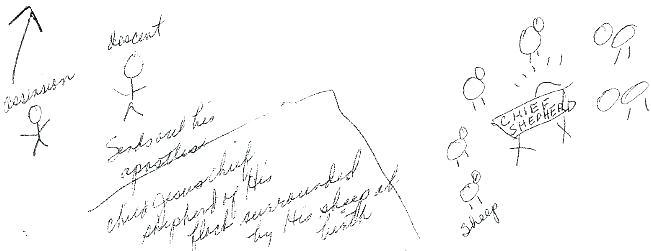 ascension
descent
Sends out his
apostles
child Jesus chief
shepherd of His
flock surrounded
by His sheep at
birth
CHIEF
SHEPHERD
sheep